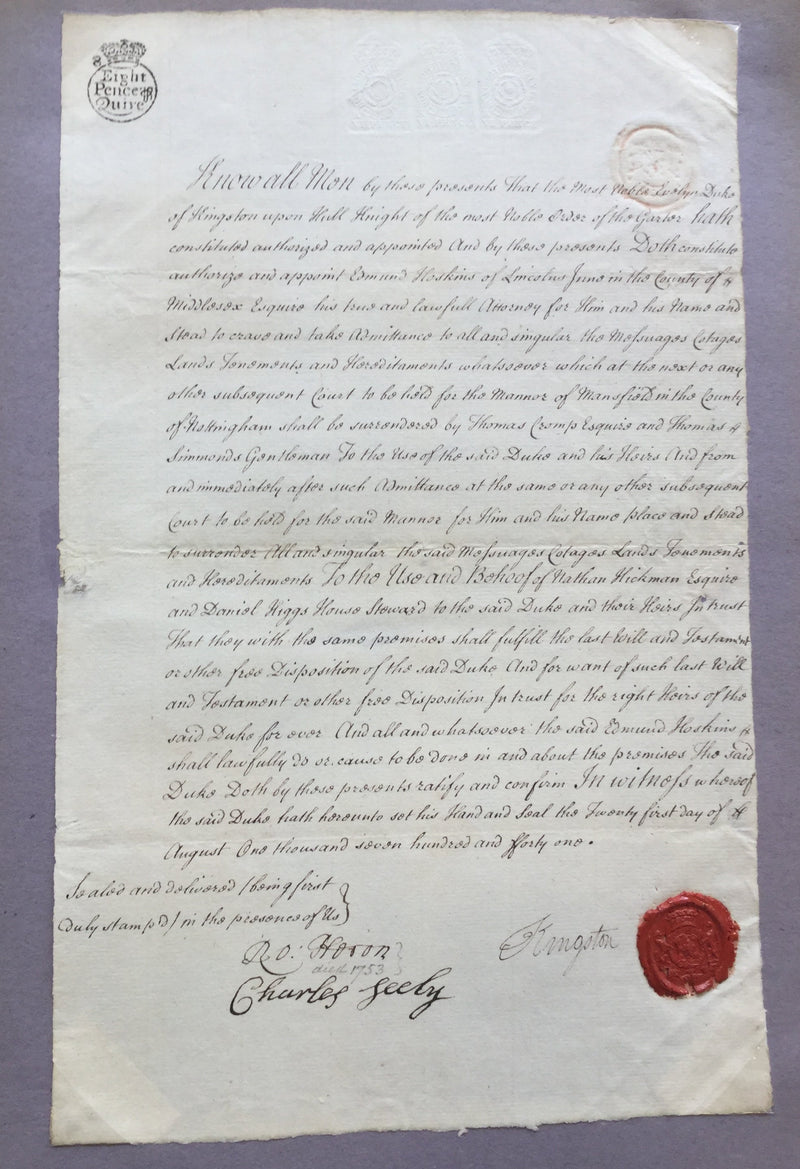 Eight
Pence ꝑ
Quire
Know all Men by these presents That the Most Noble Evelyn Duke
of Kingston upon Hull Knight of the most Noble Order of the Garter hath
constituted authorized and appointed And by these presents Doth constitute
authorize and appoint Edmund Hoskins of Lincolns Inne in the County of
Middlesex Esquire his true and lawfull Attorney for Him and his Name and
Stead to crave and take Admittance to all and singular the Messuages Cotages
Lands Tenements and Hereditaments whatsoever which at the next or any
other subsequent Court to be held for the Mannor of Mansfield in the County
of Nottingham shall be surrendered by Thomas Cromp Esquire and Thomas
Simmonds Gentleman To the Use of the said Duke and his Heirs And from
and immediately after such Admittance at the same or any other subsequent
Court to be held for the said Mannor for Him and his Name place and Stead
to surrender All and singular the said Messuages Cotages Lands Tenements
and Hereditaments To the Use and Behoof of Nathan Hickman Esquire
and Daniel Higgs House Steward to the said Duke and their Heirs In trust
That they with the same premises shall fulfill the last Will and Testament
or other free Disposition of the said Duke And for want of such last Will
and Testament or other free Disposition In trust for the right Heirs of the
said Duke for ever And all and whatsoever the said Edmund Hoskins
shall lawfully do or cause to be done in and about the premises The said
Duke Doth by these presents ratify and confirm In witness whereof
the said Duke hath hereunto set his Hand and Seal the Twenty first day of
August One thousand seven hundred and fforty one.
Sealed and delivered /being first
duly stamp'd/ in the presence of Us
Ro: Heron
died 1753
Charles Seely
Kingston